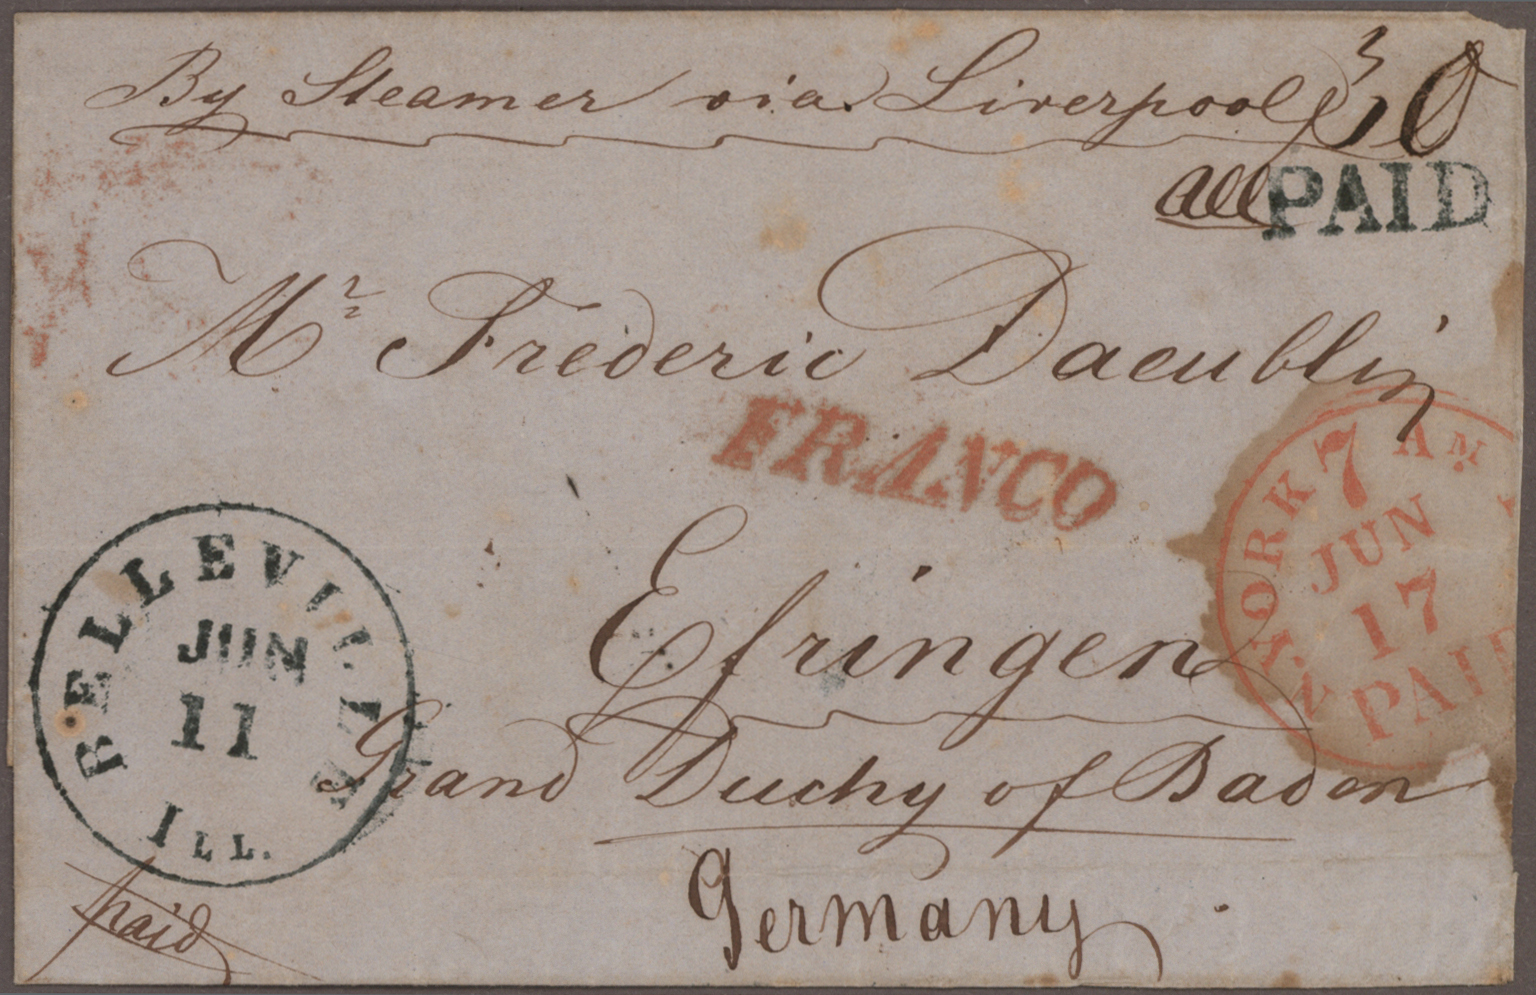 By Steamer via Liverpool
30
all PAID
Mr Frederic Daeublin
FRANCO
N. YORK
7 AM
JUN
17
PAID
BELLEVILLE
JUN
11
ILL.
Efringen
Grand Duchy of Baden
Germany
paid